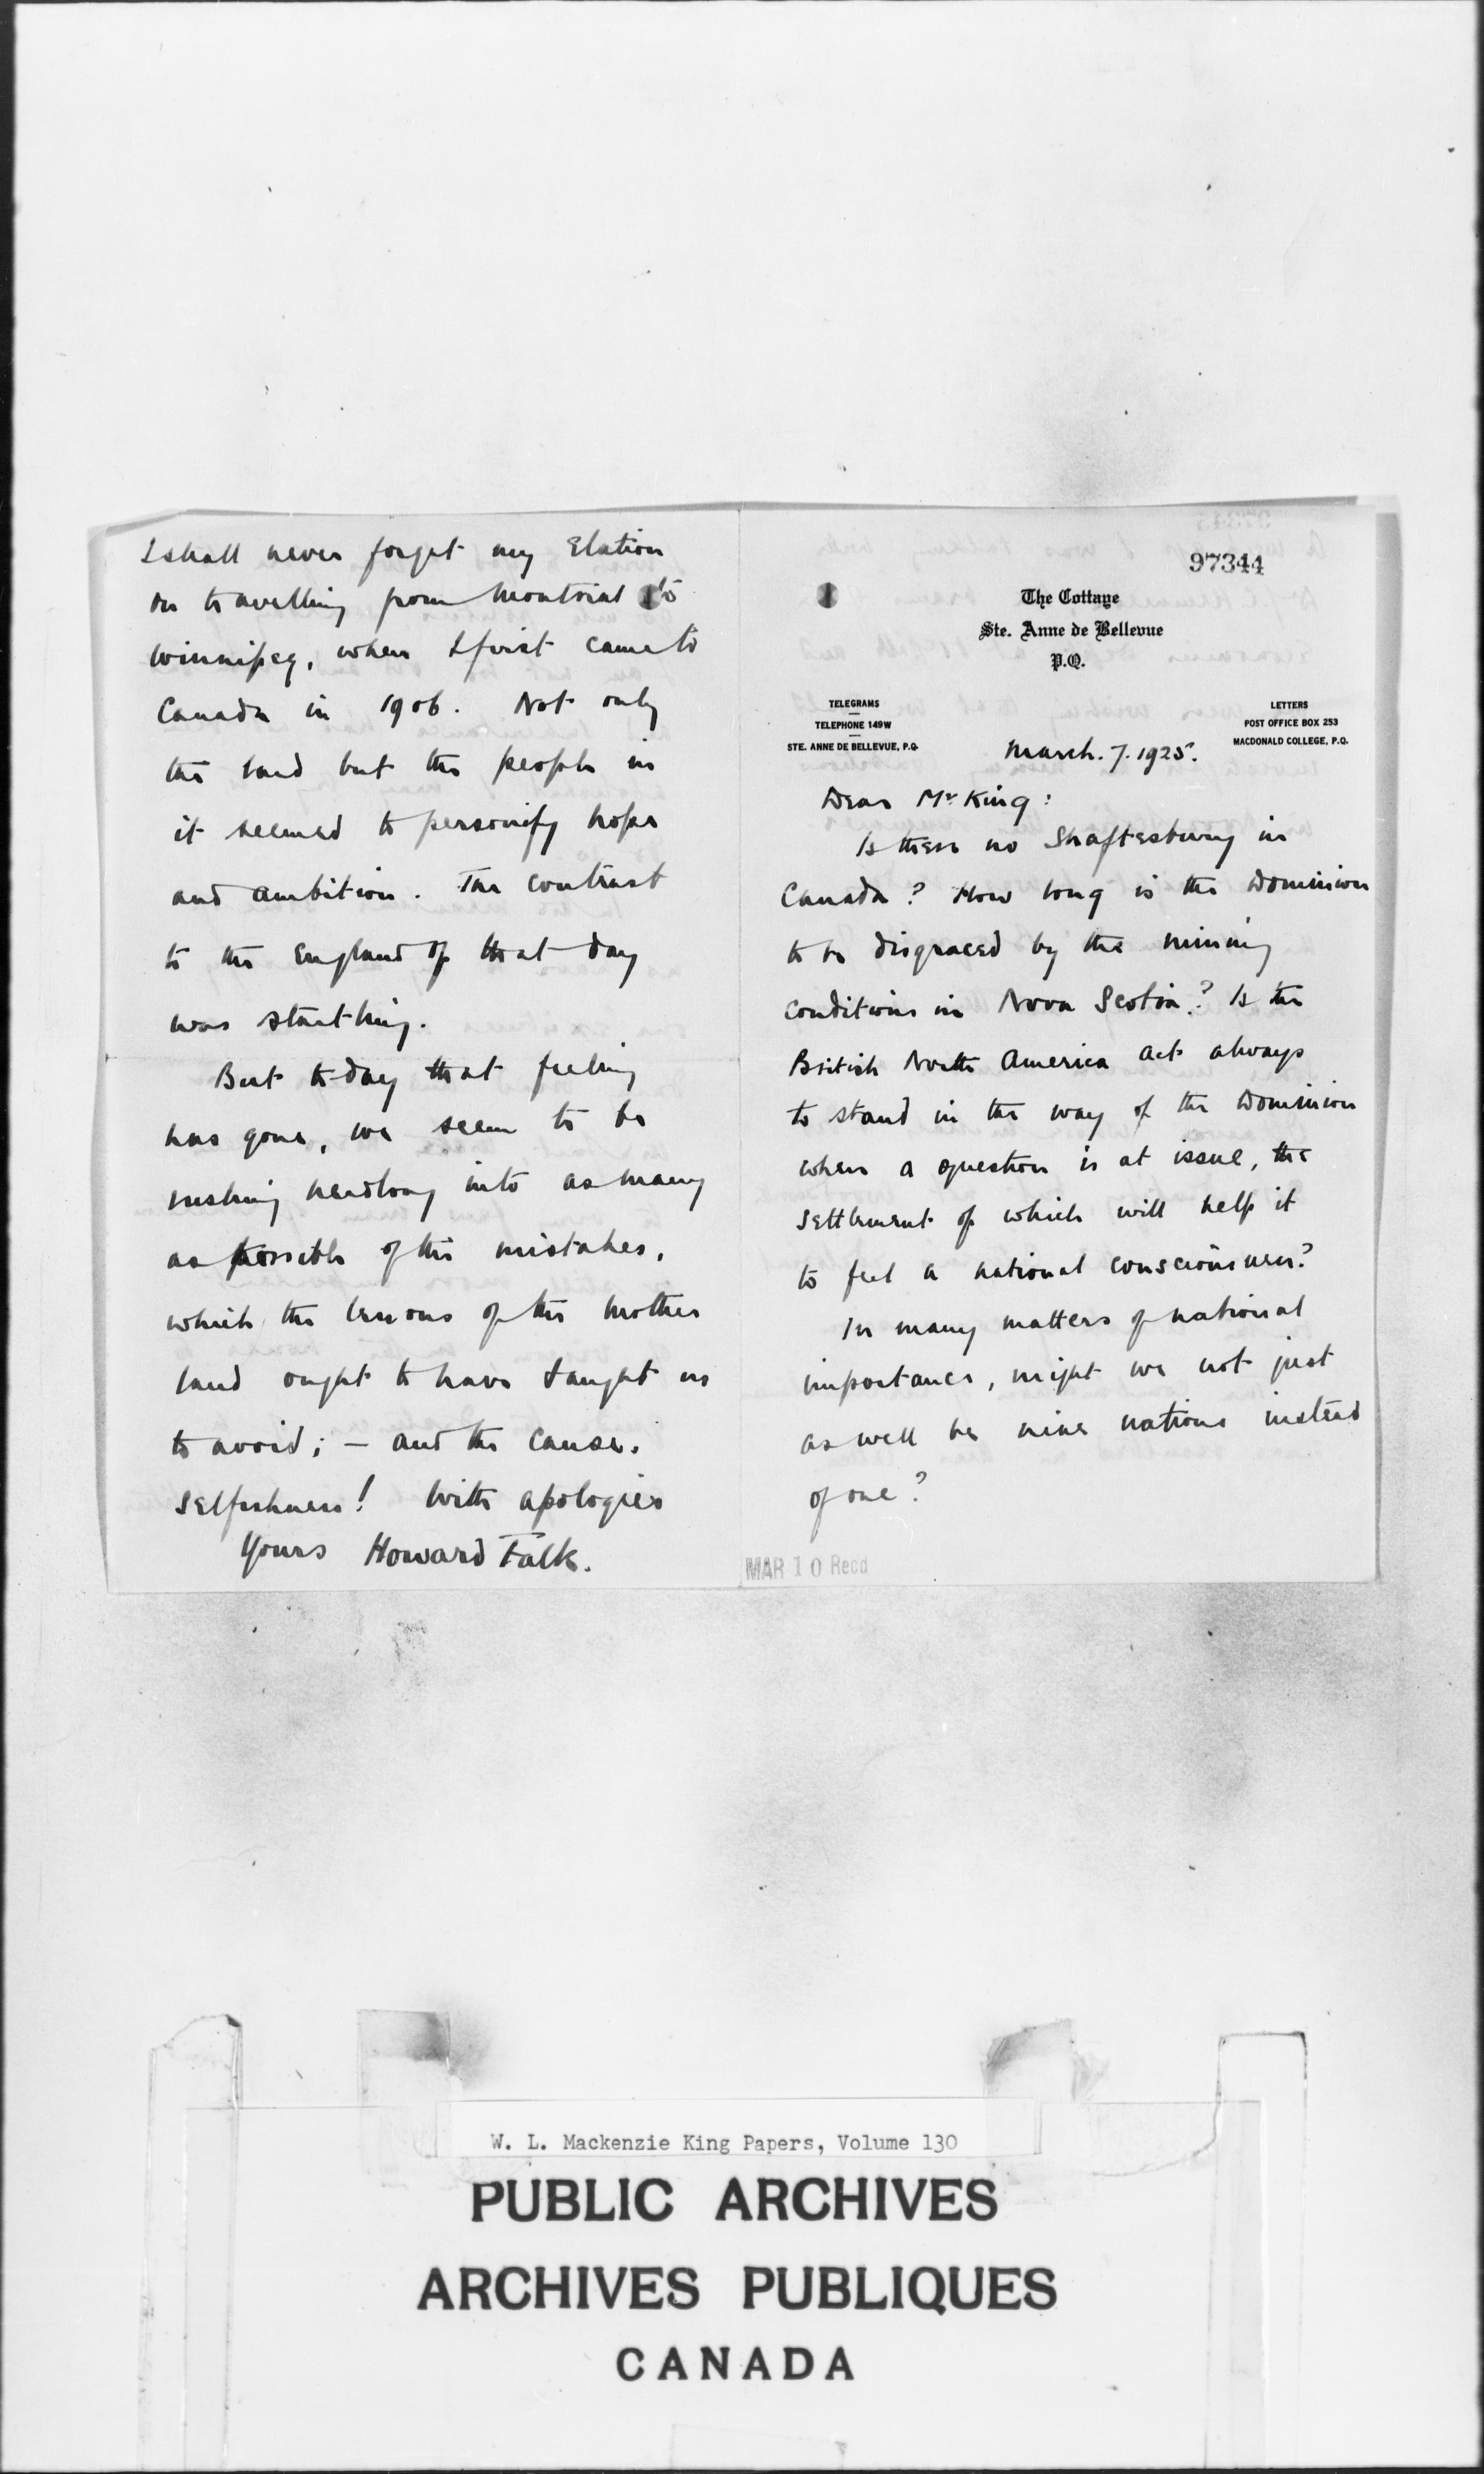 97344
The Cottage
Ste. Anne de Bellevue
P.Q.
TELEGRAMS
TELEPHONE 149W
STE. ANNE DE BELLEVUE, P.Q.
LETTERS
POST OFFICE BOX 253
MACDONALD COLLEGE, P.Q.
March. 7. 1925.
Dear Mr. King:
Is there no Shaftesbury in
Canada? How long is the Dominion
to be disgraced by the mining
conditions in Nova Scotia? Is the
British North America Act always
to stand in the way of the Dominion
when a question is at issue, the
settlement of which will help it
to feel a national consciousness?
In many matters of national
importance, might we not just
as well be nine nations instead
of one?
MAR 10 Recd
I shall never forget my elation
on travelling from Montreal to
Winnipeg, when I first came to
Canada in 1906. Not only
the land but the people in
it seemed to personify hope
and ambition. The contrast
to the England of that day
was startling.
But to-day that feeling
has gone, we seem to be
rushing headlong into as many
as possible of the mistakes,
which the lessons of the mother
land ought to have taught us
to avoid; – and the cause.
Selfishness! With apologies
Yours Howard Falk.
W. L. Mackenzie King Papers, Volume 130
PUBLIC ARCHIVES
ARCHIVES PUBLIQUES
CANADA